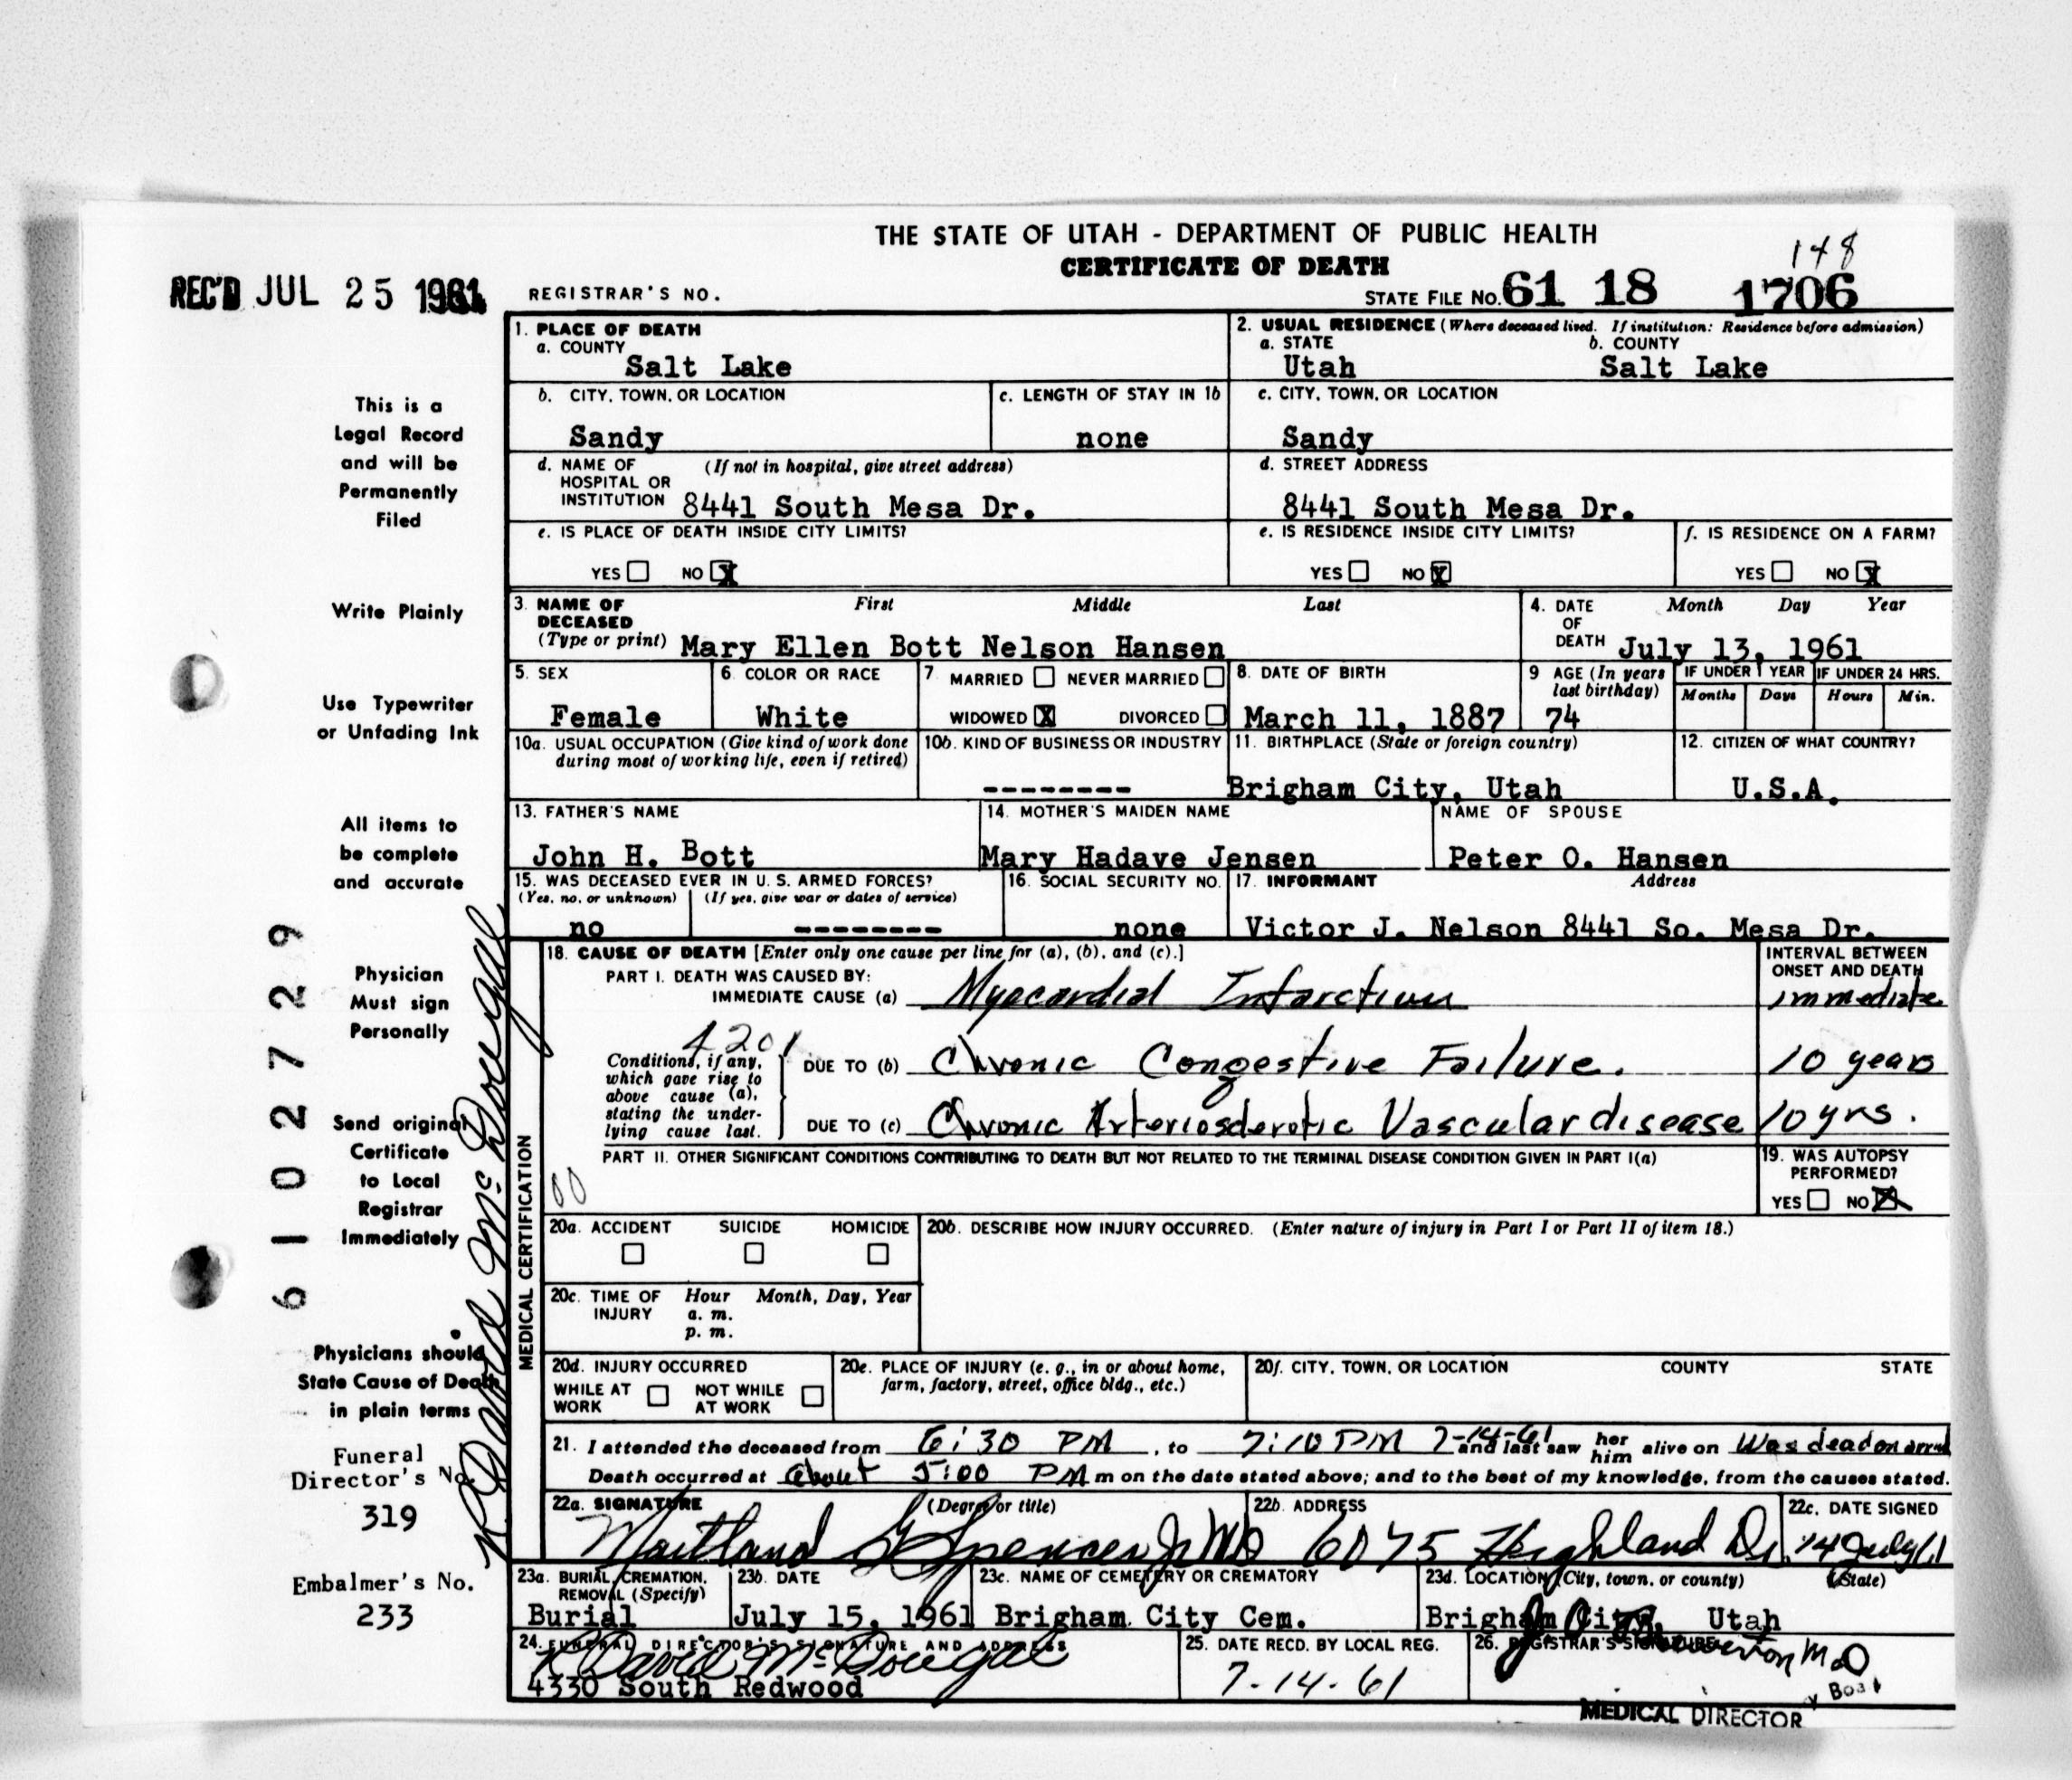 THE STATE OF UTAH - DEPARTMENT OF PUBLIC HEALTH
148
CERTIFICATE OF DEATH
REC'D JUL 25 1961
REGISTRAR'S NO.
STATE FILE NO. 61 18 1706
1. PLACE OF DEATH
a. COUNTY
Salt Lake
2. USUAL RESIDENCE (Where deceased lived. If institution: Residence before admission)
a. STATE b. COUNTY
Utah Salt Lake
b. CITY, TOWN, OR LOCATION
Sandy
c. LENGTH OF STAY IN 1b
none
c. CITY, TOWN, OR LOCATION
Sandy
d. NAME OF (If not in hospital, give street address)
HOSPITAL OR
INSTITUTION 8441 South Mesa Dr.
d. STREET ADDRESS
8441 South Mesa Dr.
e. IS PLACE OF DEATH INSIDE CITY LIMITS?
YES NO X
e. IS RESIDENCE INSIDE CITY LIMITS?
YES NO X
f. IS RESIDENCE ON A FARM?
YES NO X
3. NAME OF First Middle Last
DECEASED
(Type or print) Mary Ellen Bott Nelson Hansen
4. DATE Month Day Year
OF
DEATH July 13, 1961
5. SEX
Female
6. COLOR OR RACE
White
7 MARRIED NEVER MARRIED
WIDOWED X DIVORCED
8. DATE OF BIRTH
March 11, 1887
9 AGE (In years
last birthday)
74
IF UNDER 1 YEAR
Months Days
IF UNDER 24 HRS.
Hours Min.
10a. USUAL OCCUPATION (Give kind of work done
during most of working life, even if retired)
10b. KIND OF BUSINESS OR INDUSTRY
--------
11. BIRTHPLACE (State or foreign country)
Brigham City, Utah
12. CITIZEN OF WHAT COUNTRY?
U.S.A.
13. FATHER'S NAME
John H. Bott
14. MOTHER'S MAIDEN NAME
Mary Hadave Jensen
NAME OF SPOUSE
Peter O. Hansen
15. WAS DECEASED EVER IN U. S. ARMED FORCES?
(Yes, no, or unknown) (If yes, give war or dates of service)
no --------
16. SOCIAL SECURITY NO.
none
17. INFORMANT Address
Victor J. Nelson 8441 So. Mesa Dr.
MEDICAL CERTIFICATION
18. CAUSE OF DEATH [Enter only one cause per line for (a), (b), and (c).]
INTERVAL BETWEEN
ONSET AND DEATH
PART I. DEATH WAS CAUSED BY:
IMMEDIATE CAUSE (a) Myocardial Infarction immediate
4201
Conditions, if any,
which gave rise to
above cause (a),
stating the under-
lying cause last.
DUE TO (b) Chronic Congestive Failure. 10 years
DUE TO (c) Chronic Arteriosclerotic Vascular disease 10 yrs.
PART II. OTHER SIGNIFICANT CONDITIONS CONTRIBUTING TO DEATH BUT NOT RELATED TO THE TERMINAL DISEASE CONDITION GIVEN IN PART I(a)
00
19. WAS AUTOPSY
PERFORMED?
YES NO X
20a. ACCIDENT SUICIDE HOMICIDE
20b. DESCRIBE HOW INJURY OCCURRED. (Enter nature of injury in Part I or Part II of item 18.)
20c. TIME OF Hour Month, Day, Year
INJURY a. m.
p. m.
20d. INJURY OCCURRED
WHILE AT NOT WHILE
WORK AT WORK
20e. PLACE OF INJURY (e. g., in or about home,
farm, factory, street, office bldg., etc.)
20f. CITY, TOWN, OR LOCATION COUNTY STATE
21. I attended the deceased from 6:30 PM, to 7:10 PM 7-14-61 and last saw her him alive on Was dead on arrival
Death occurred at about 5:00 PM m on the date stated above; and to the best of my knowledge, from the causes stated.
22a. SIGNATURE (Degree or title)
Maitland G Spencer Jr MD
22b. ADDRESS
6075 Highland Dr.
22c. DATE SIGNED
14 July 61
23a. BURIAL, CREMATION,
REMOVAL (Specify)
Burial
23b. DATE
July 15, 1961
23c. NAME OF CEMETERY OR CREMATORY
Brigham City Cem.
23d. LOCATION (City, town, or county) (State)
Brigham City, Utah
24. FUNERAL DIRECTOR'S SIGNATURE AND ADDRESS
R David McDougal
4330 South Redwood
25. DATE RECD. BY LOCAL REG.
7-14-61
26. REGISTRAR'S SIGNATURE
MEDICAL DIRECTOR
This is a
Legal Record
and will be
Permanently
Filed
Write Plainly
Use Typewriter
or Unfading Ink
All items to
be complete
and accurate
Physician
Must sign
Personally
Send original
Certificate
to Local
Registrar
Immediately
Physicians should
State Cause of Death
in plain terms
Funeral
Director's No.
319
Embalmer's No.
233
6102729
R David McDougal